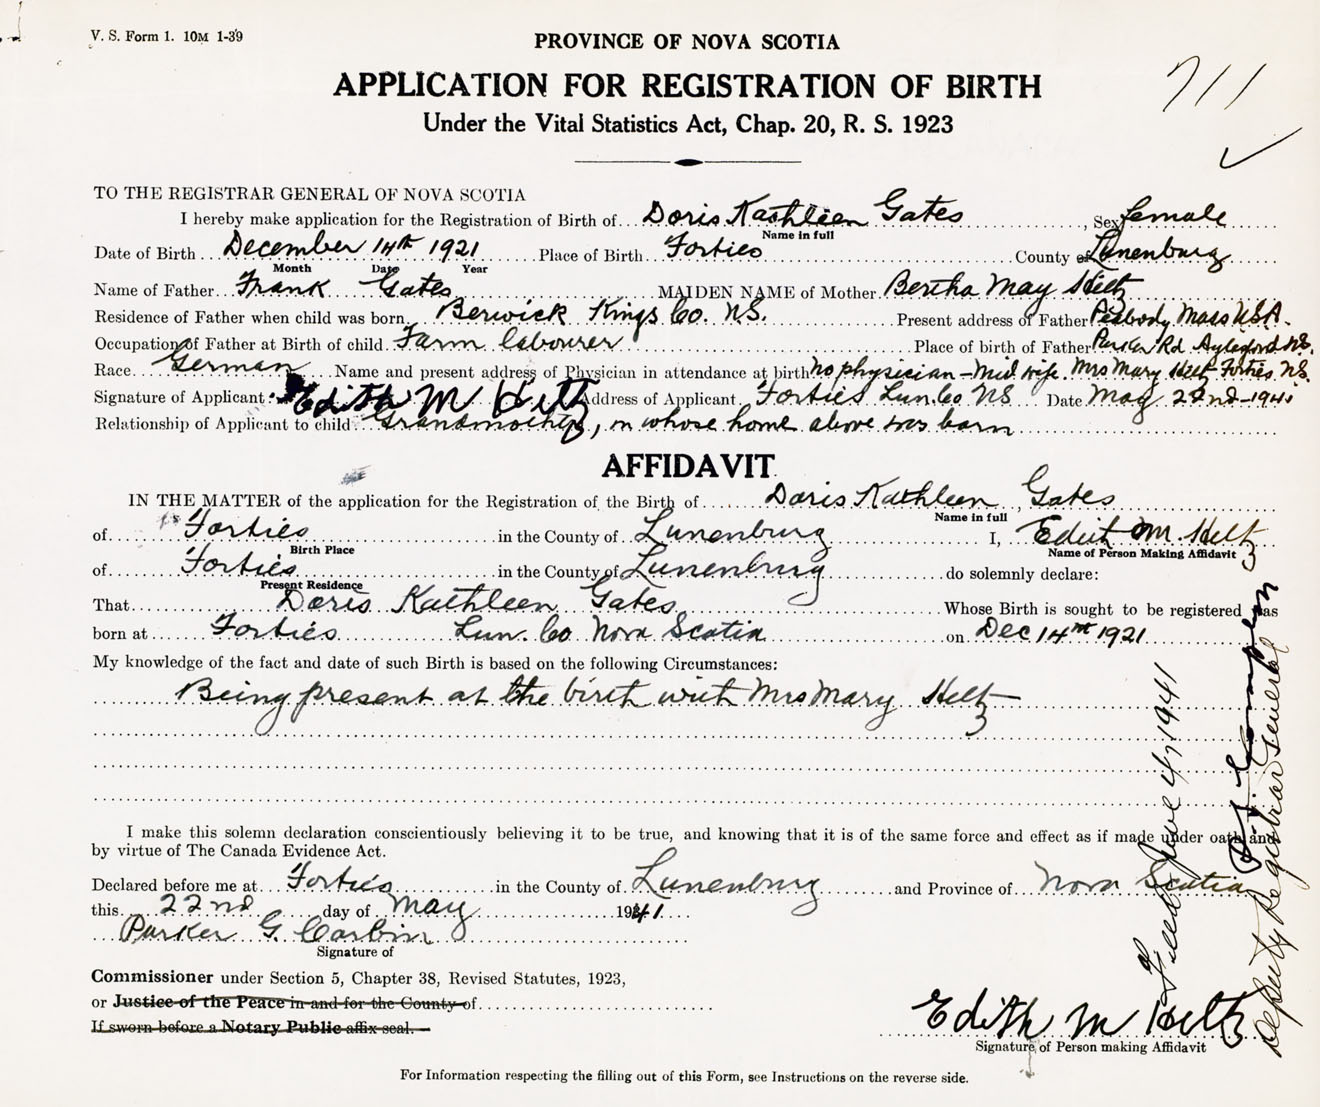 V. S. Form 1. 10M 1-39
PROVINCE OF NOVA SCOTIA
711
APPLICATION FOR REGISTRATION OF BIRTH
Under the Vital Statistics Act, Chap. 20, R. S. 1923
TO THE REGISTRAR GENERAL OF NOVA SCOTIA
I hereby make application for the Registration of Birth of Doris Kathleen Gates, Sex female
Name in full
Date of Birth December 14th 1921 Place of Birth Forties County of Lunenburg
Month Date Year
Name of Father Frank Gates MAIDEN NAME of Mother Bertha May Heltz
Residence of Father when child was born Berwick Kings Co. N.S. Present address of Father Peabody Mass U.S.A.
Occupation of Father at Birth of child Farm labourer Place of birth of Father Parker Rd Aylesford N.S.
Race German Name and present address of Physician in attendance at birth no physician - Mid wife. Mrs Mary Heltz Forties N.S.
Signature of Applicant Edith M Heltz Address of Applicant Forties Lun. Co NS Date May 22nd - 1941
Relationship of Applicant to child Grandmother, in whose home above was born
AFFIDAVIT
IN THE MATTER of the application for the Registration of the Birth of Doris Kathleen Gates
Name in full
of Forties in the County of Lunenburg I, Edith M. Heltz
Birth Place Name of Person Making Affidavit
of Forties in the County of Lunenburg do solemnly declare:
Present Residence
That Doris Kathleen Gates Whose Birth is sought to be registered was
born at Forties Lun. Co Nova Scotia on Dec 14th 1921
My knowledge of the fact and date of such Birth is based on the following Circumstances:
Being present at the birth with Mrs Mary Heltz
I make this solemn declaration conscientiously believing it to be true, and knowing that it is of the same force and effect as if made under oath and
by virtue of The Canada Evidence Act.
Declared before me at Forties in the County of Lunenburg and Province of Nova Scotia
this 22nd day of May 1941
Parker G. Corbin
Signature of
Commissioner under Section 5, Chapter 38, Revised Statutes, 1923,
or Justice of the Peace in and for the County of
If sworn before a Notary Public affix seal.
Edith M Heltz
Signature of Person making Affidavit
For Information respecting the filling out of this Form, see Instructions on the reverse side.
Filed June 4, 1941
Deputy Registrar General